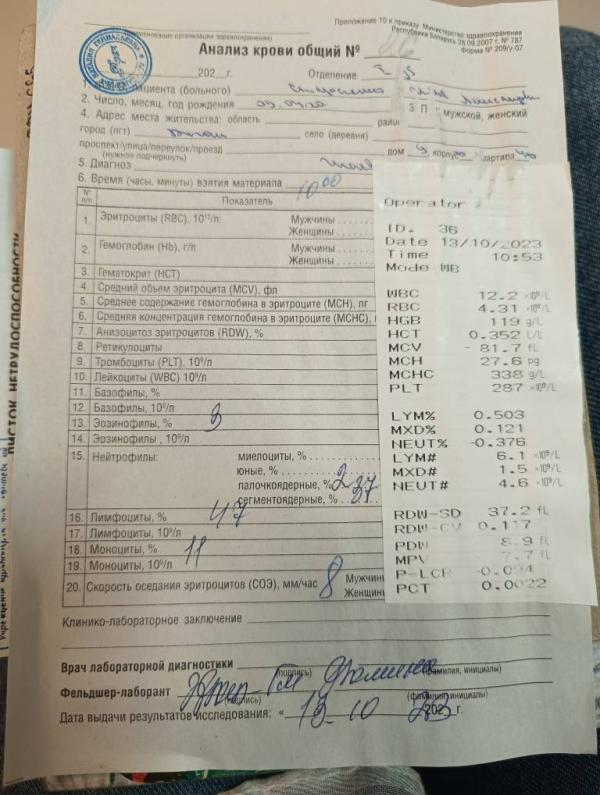 Приложение 10 к приказу Министерства здравоохранения
Республики Беларусь 28.09.2007 г. № 787
Форма № 209/у-07
(наименование организации здравоохранения)
Анализ крови общий №
202_г. Отделение
пациента (больного)
2. Число, месяц, год рождения 3 П мужской, женский
4. Адрес места жительства: область район
город (пгт) село (деревня)
проспект/улица/переулок/проезд дом 9 корпус квартира
(нужное подчеркнуть)
5. Диагноз
6. Время (часы, минуты) взятия материала 10 00
№ п/п Показатель
1. Эритроциты (RBC), 10¹²/л: Мужчины
Женщины
2. Гемоглобин (Hb), г/л Мужчины
Женщины
3. Гематокрит (HCT)
4. Средний объем эритроцита (MCV), фл
5. Среднее содержание гемоглобина в эритроците (MCH), пг
6. Средняя концентрация гемоглобина в эритроците (MCHC),
7. Анизоцитоз эритроцитов (RDW), %
8. Ретикулоциты
9. Тромбоциты (PLT), 10⁹/л
10. Лейкоциты (WBC) 10⁹/л
11. Базофилы, %
12. Базофилы, 10⁹/л
13. Эозинофилы, % 3
14. Эозинофилы, 10⁹/л
15. Нейтрофилы: миелоциты, %
юные, %
палочкоядерные, % 2
сегментоядерные, % 37
16. Лимфоциты, % 47
17. Лимфоциты, 10⁹/л
18. Моноциты, % 11
19. Моноциты, 10⁹/л
20. Скорость оседания эритроцитов (СОЭ), мм/час 8 Мужчины
Женщины
Клинико-лабораторное заключение
Врач лабораторной диагностики
(подпись) (фамилия, инициалы)
Фельдшер-лаборант
(подпись) (фамилия, инициалы)
Дата выдачи результатов исследования: « 13 10 2023 г.
Operator
ID. 36
Date 13/10/2023
Time 10:53
Mode WB
WBC 12.2 ×10⁹/L
RBC 4.31 ×10¹²/L
HGB 119 g/L
HCT 0.352 L/L
MCV - 81.7 fL
MCH 27.6 pg
MCHC 338 g/L
PLT 287 ×10⁹/L
LYM% 0.503
MXD% 0.121
NEUT% -0.376
LYM# 6.1 ×10⁹/L
MXD# 1.5 ×10⁹/L
NEUT# 4.6 ×10⁹/L
RDW-SD 37.2 fL
RDW-CV 0.117
PDW 8.9 fL
MPV 7.7 fL
P-LCR -0.094
PCT 0.0022
ЛИСТОК НЕТРУДОСПОСОБНОСТИ